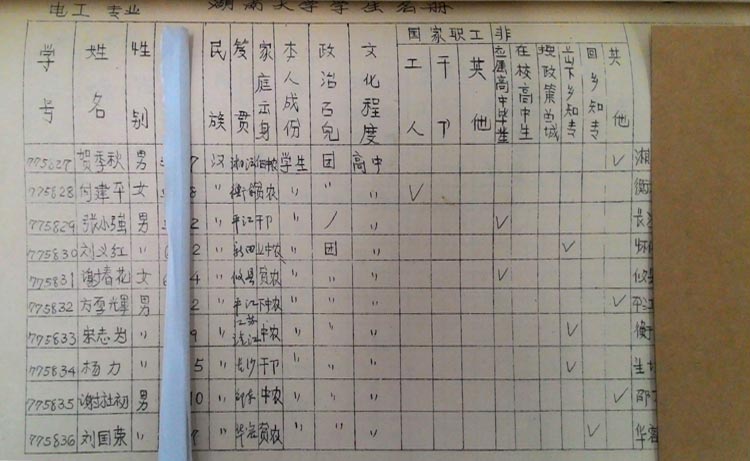 电工专业 湖南大学学生名册
学号 姓名 性别 民族 籍贯 家庭出身 本人成份 政治面貌 文化程度 国家职工 非
工人 干卩 其他 应届高中毕生 在校高中生 按政策留城 上山下乡知青 回乡知青 其他
775827 贺季秋 男 7 汉 学生 团 高中 ✓ 湘
775828 付建平 女 8 〃 贫农 〃 〃 〃 ✓ 衡
775829 张小强 男 2 〃 平江 干卩 〃 / 〃 ✓ 长
775830 刘义红 〃 2 〃 新田 中农 〃 团 〃 ✓ 怀
775831 谢春花 女 4 〃 攸县 贫农 〃 〃 〃 ✓ 攸
775832 方 辉 男 2 〃 平江 下中农 〃 〃 〃 ✓ 平江
775833 宋志 〃 9 〃 江苏 中农 〃 〃 〃 ✓ 衡
775834 杨力 〃 5 〃 长沙 干卩 〃 〃 〃 ✓
775835 谢社初 男 10 〃 邵东 中农 〃 〃 〃 ✓ 邵
775836 刘国荣 〃 7 〃 华容 贫农 〃 〃 〃 ✓ 华容